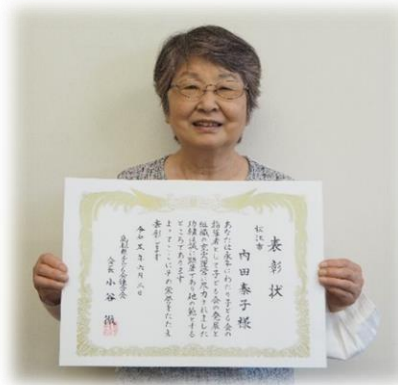 表彰状
松江市
内田泰子様
あなたは永年にわたり子ども会の
指導者として子ども会の発展と
組織の充実運営に尽力されました
功績は誠に顕著であり他の範とする
ところであります
よってここにその栄誉をたたえ
表彰します
令和五年六月八日
会長 小谷